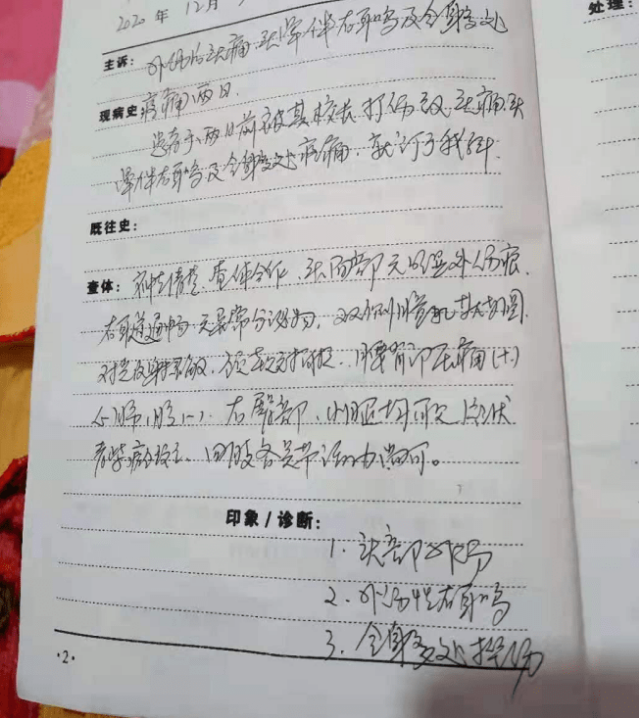 2020年12月
处理:
主诉: 外伤后头痛、头晕伴右耳鸣及全身多处
疼痛两日.
现病史
患者于两日前被其校长打伤致头痛、头
晕伴右耳鸣及全身多处疼痛,就诊于我科.
既往史:
查体: 神志清楚,查体合作,头面部无明显外伤痕,
右耳道通畅,无异常分泌物,双侧瞳孔等大等圆,
对光反射灵敏,颈软,腰背部压痛(+)
心肺腹(-),右臀部、小腿均可见片状
青紫瘀斑,四肢各关节活动尚可。
印象/诊断:
1. 头部外伤
2. 外伤性右耳鸣
3. 全身多处挫伤
·2·